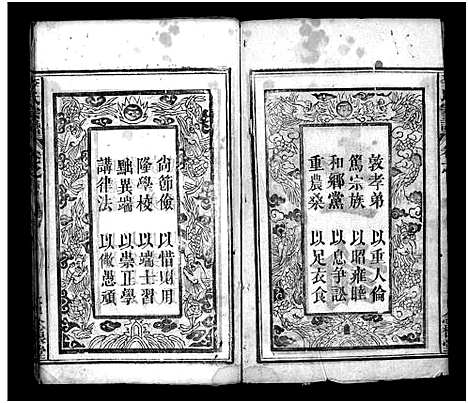 敦孝弟 以重人倫
篤宗族 以昭雍睦
和鄉黨 以息爭訟
重農桑 以足衣食
尙節儉 以惜財用
隆學校 以端士習
黜異端 以崇正學
講律法 以儆愚頑